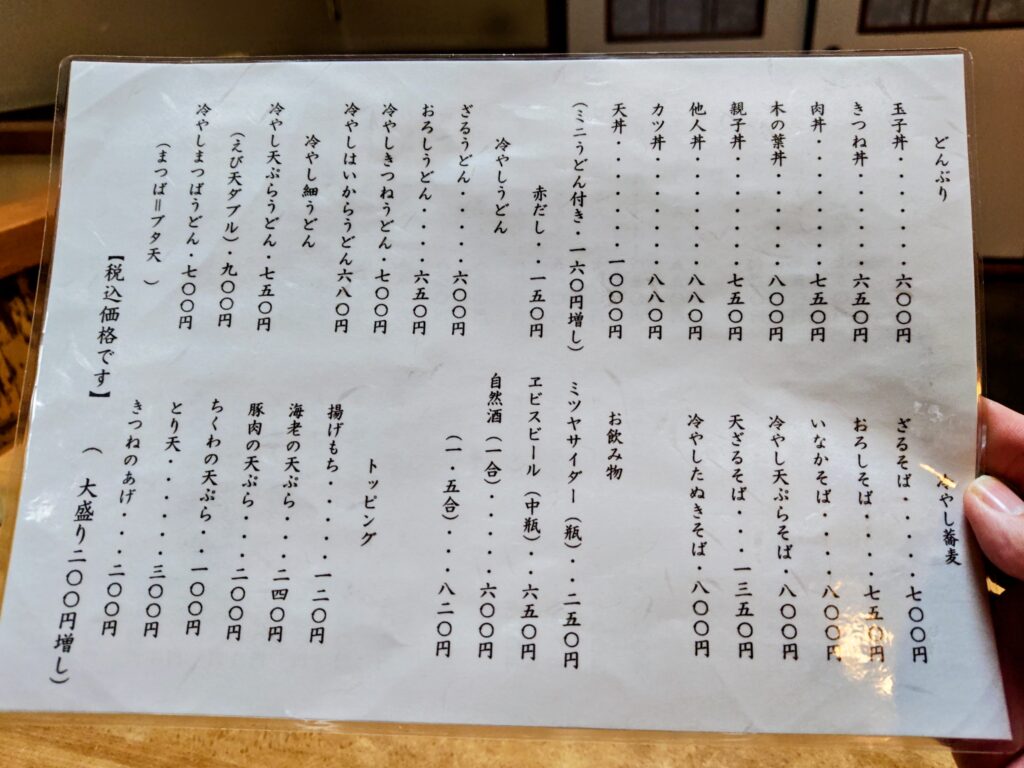 どんぶり
玉子丼・・・・・・六〇〇円
きつね丼・・・・・六五〇円
肉丼・・・・・・・七五〇円
木の葉丼・・・・・八〇〇円
親子丼・・・・・・七五〇円
他人丼・・・・・・八八〇円
カツ丼・・・・・・八八〇円
天丼・・・・・・一〇〇〇円
(ミニうどん付き・一六〇円増し)
赤だし・・一五〇円
冷やしうどん
ざるうどん・・・・六〇〇円
おろしうどん・・・六五〇円
冷やしきつねうどん・七〇〇円
冷やしはいからうどん六八〇円
冷やし細うどん
冷やし天ぷらうどん・七五〇円
(えび天ダブル)・九〇〇円
冷やしまつばうどん・七〇〇円
(まつば=ブタ天)
【税込価格です】
冷やし蕎麦
ざるそば・・・・・七〇〇円
おろしそば・・・・七五〇円
いなかそば・・・・八〇〇円
冷やし天ぷらそば・八〇〇円
天ざるそば・・・一三五〇円
冷やしたぬきそば・八〇〇円
お飲み物
ミツヤサイダー(瓶)・・二五〇円
ヱビスビール(中瓶)・・六五〇円
自然酒(一合)・・・・・六〇〇円
(一・五合)・・・八二〇円
トッピング
揚げもち・・・・一二〇円
海老の天ぷら・・・二四〇円
豚肉の天ぷら・・・二〇〇円
ちくわの天ぷら・・一〇〇円
とり天・・・・・・三〇〇円
きつねのあげ・・・二〇〇円
(大盛り二〇〇円増し)